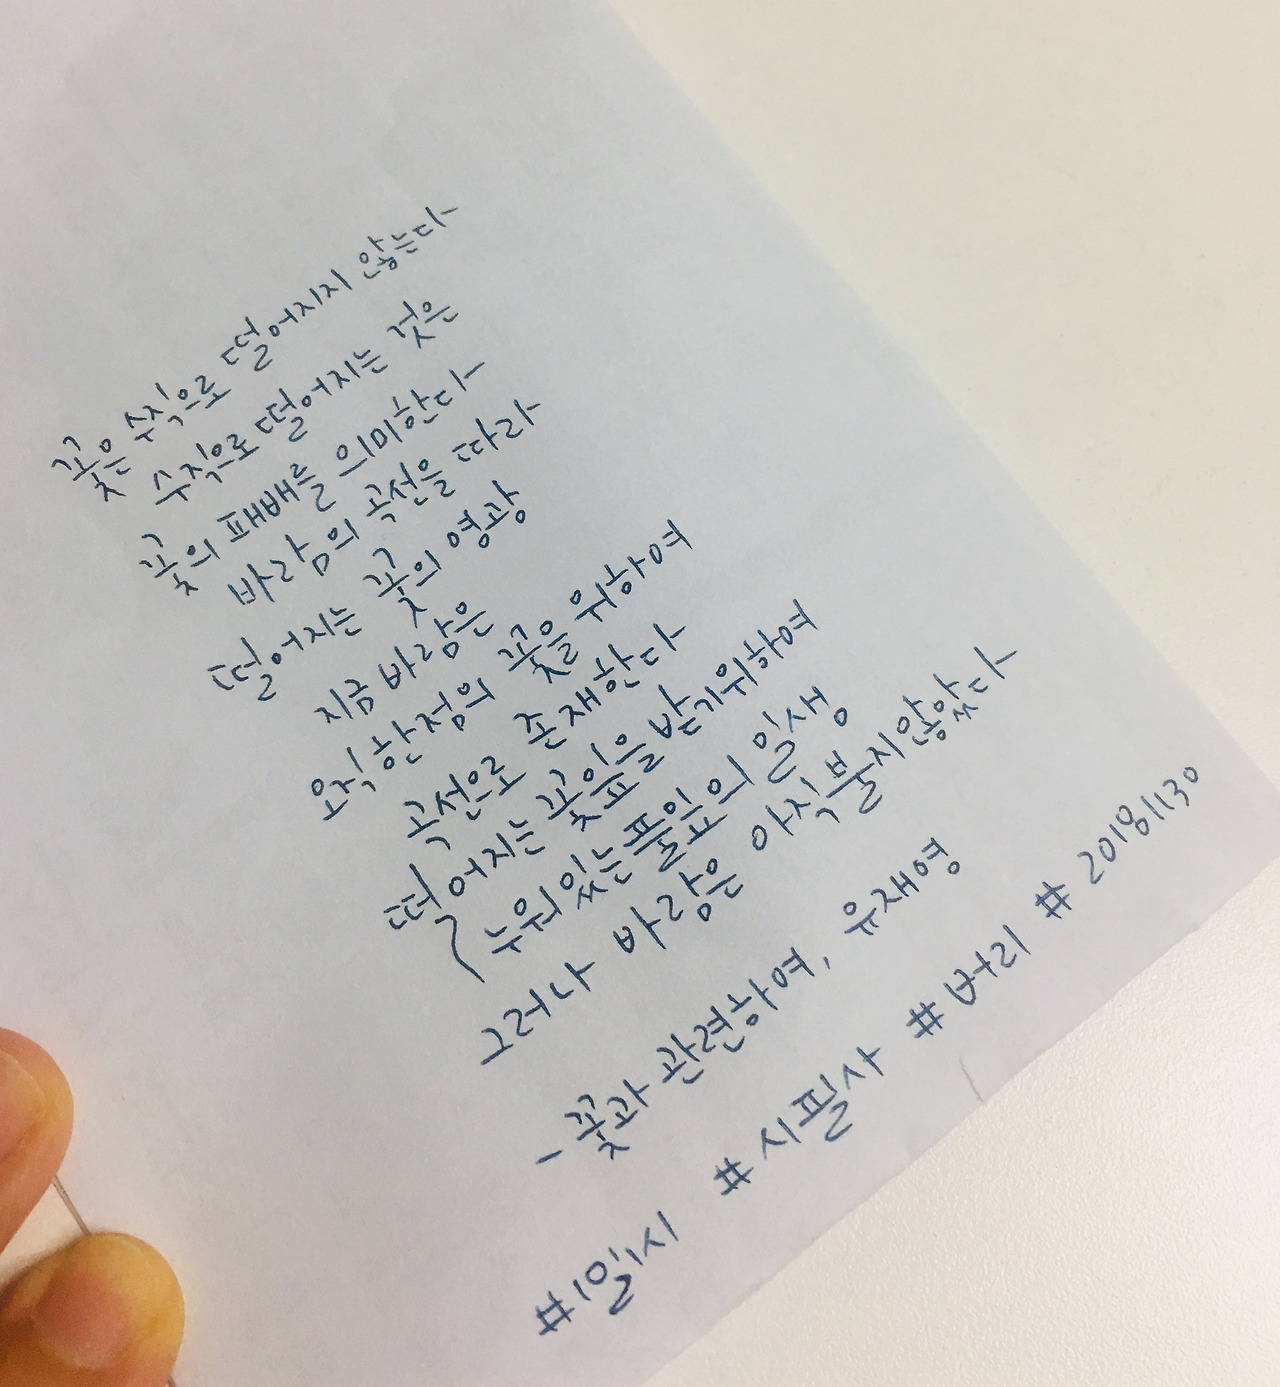 꽃은 수직으로 떨어지지 않는다
수직으로 떨어지는 것은
꽃의 패배를 의미한다
바람의 곡선을 따라
떨어지는 꽃의 영광
지금 바람은
오직 한 점의 꽃을 위하여
곡선으로 존재한다
떨어지는 꽃잎을 받기 위하여
누워있는 풀잎의 일생
그러나 바람은 아직 불지 않았다
- 꽃과 관련하여, 유재영
#1일1시 #시필사 #버리 #20181130